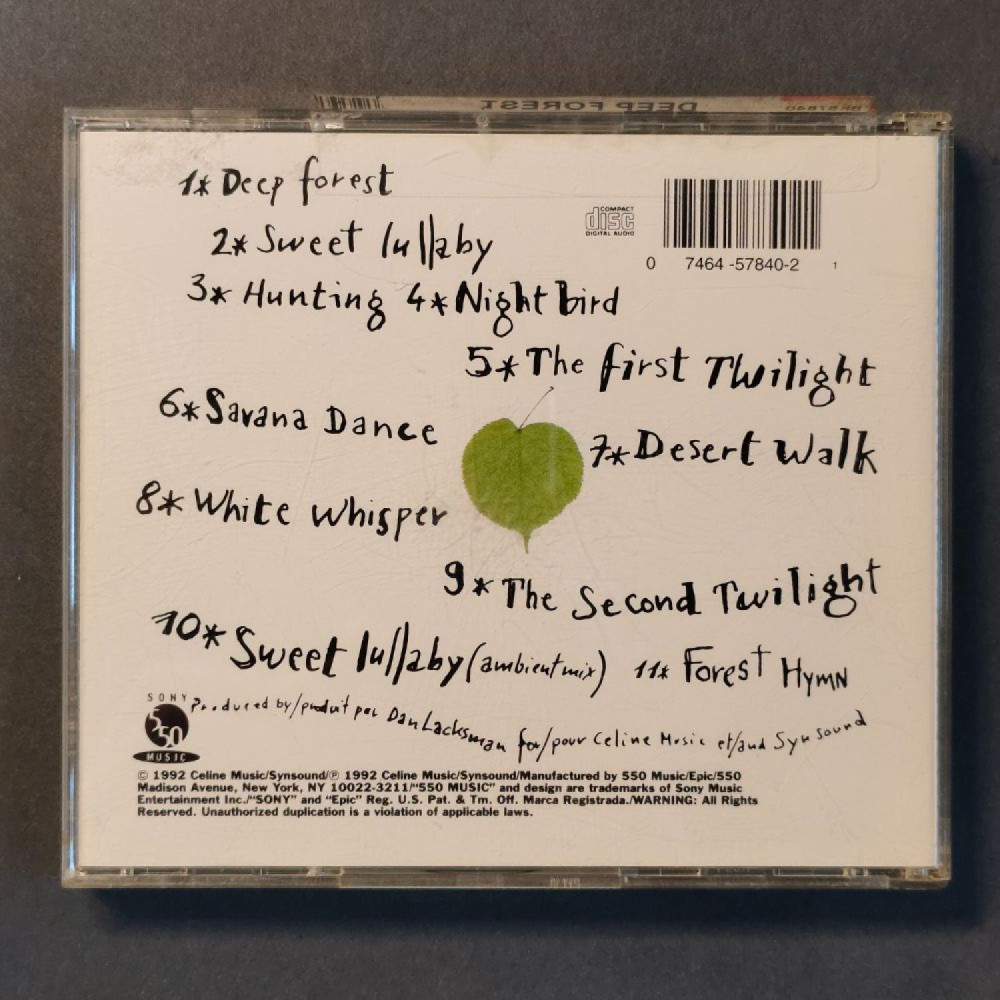 DEEP FOREST
BK 57840
1* Deep forest
COMPACT
disc
DIGITAL AUDIO
2* Sweet lullaby
0 7464-57840-2 1
3* Hunting 4* Night bird
5* The first Twilight
6* Savana Dance
7* Desert Walk
8* White Whisper
9* The Second Twilight
10* Sweet lullaby (ambient mix) 11* Forest HYMN
SONY
550
MUSIC
Produced by/produit par Dan Lacksman for/pour Celine Music et/and Synsound
© 1992 Celine Music/Synsound/℗ 1992 Celine Music/Synsound/Manufactured by 550 Music/Epic/550
Madison Avenue, New York, NY 10022-3211/"550 MUSIC" and design are trademarks of Sony Music
Entertainment Inc./"SONY" and "Epic" Reg. U.S. Pat. & Tm. Off. Marca Registrada./WARNING: All Rights
Reserved. Unauthorized duplication is a violation of applicable laws.